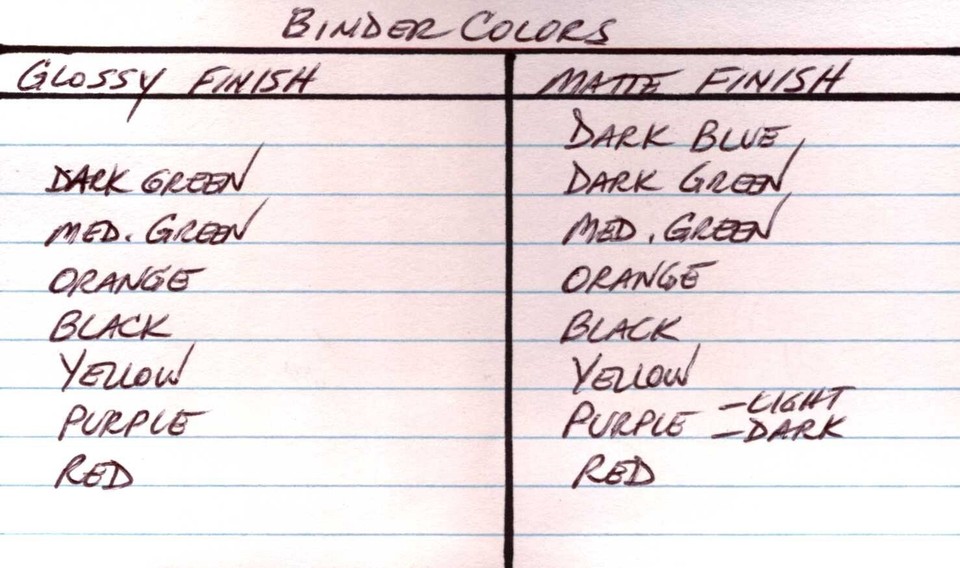 BINDER COLORS
GLOSSY FINISH
MATTE FINISH
DARK GREEN
MED. GREEN
ORANGE
BLACK
YELLOW
PURPLE
RED
DARK BLUE
DARK GREEN
MED. GREEN
ORANGE
BLACK
YELLOW
PURPLE -LIGHT
-DARK
RED